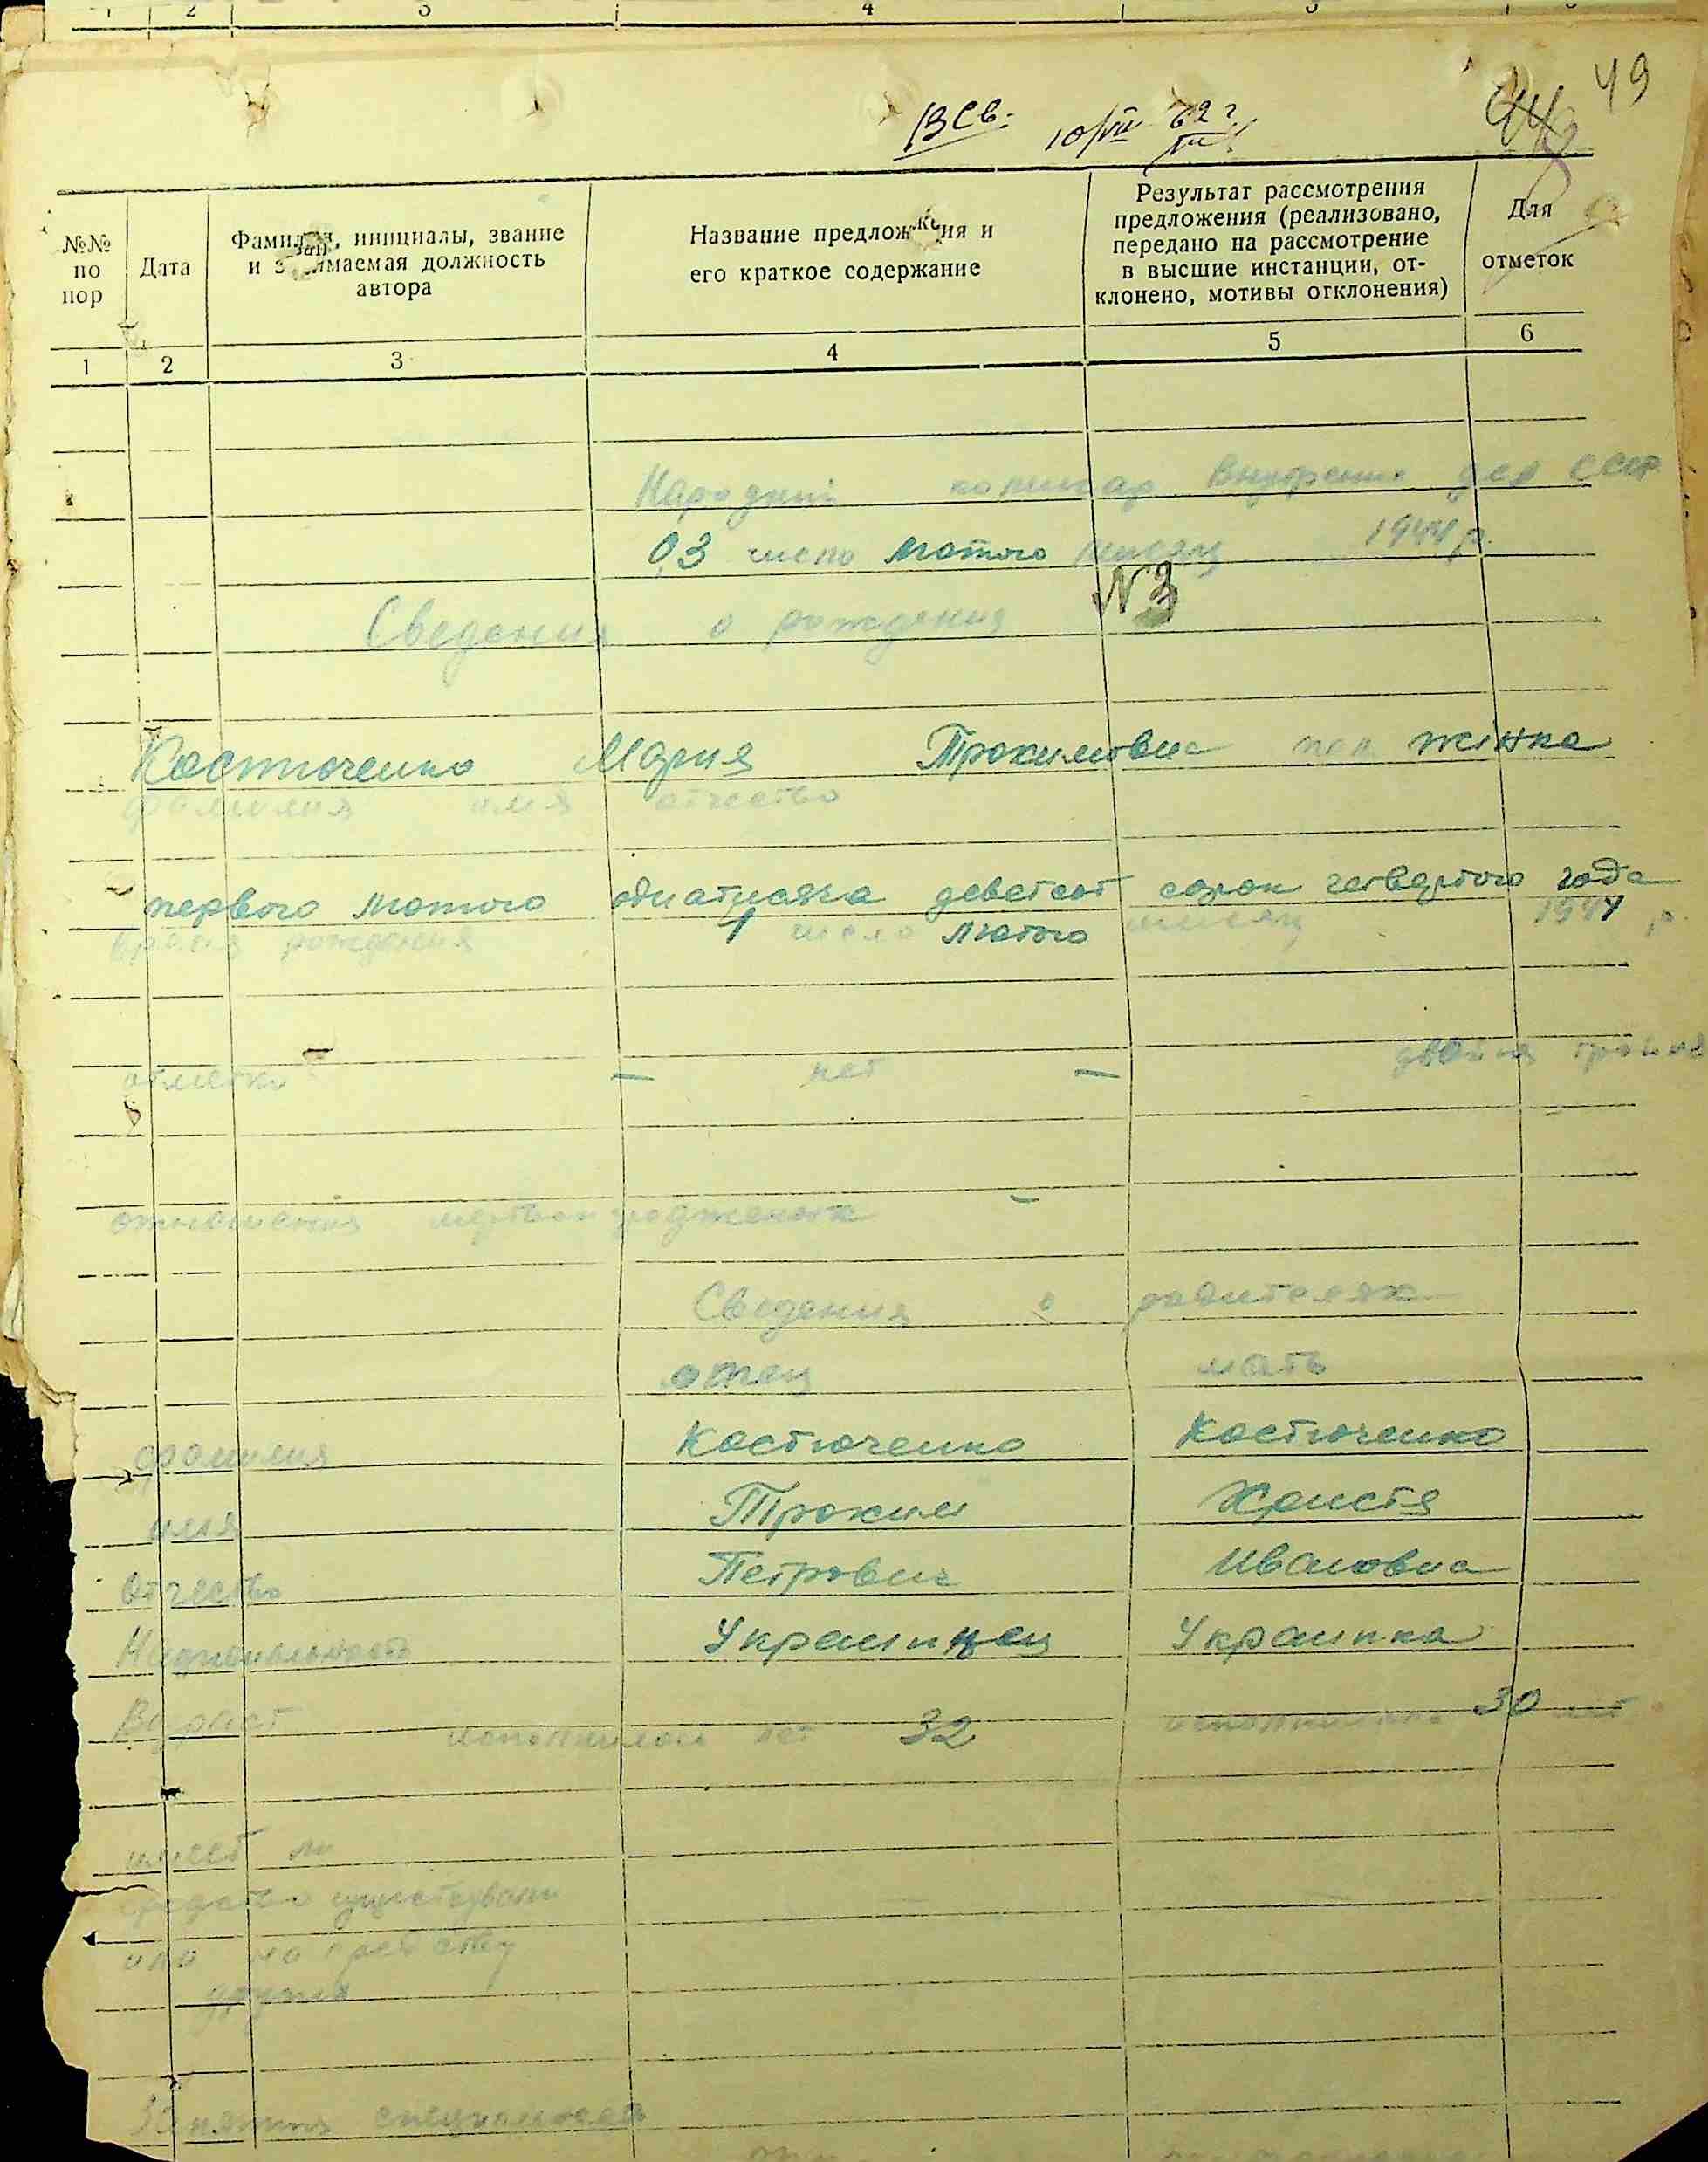 1 2 3 4 5
49
В Св. 10/VIII 62 г
№№ по пор
Дата
Фамилия, инициалы, звание и занимаемая должность автора
Название предложения и его краткое содержание
Результат рассмотрения предложения (реализовано, передано на рассмотрение в высшие инстанции, отклонено, мотивы отклонения)
Для отметок
1 2 3 4 5 6
Народний комисар Внутрених дел СССР
03 число лютого мисяц 1944 р.
Сведения о рождения N 3
Костюченко Мария Трокимовна пол жінка
фамилия имя отчество
первого лютого одна тисяча деветсот сорок четвертого года
время рождения 1 число лютого мисяц 1944 р.
отметки — нет — двойня тройня
отношения
Сведения о родителях
отец мать
фамилия Костюченко Костюченко
имя Троким Христя
отчество Петрович Ивановна
Национальность Украинец Украинка
Возраст исполнилось лет 32 исполнилось 30 лет
имеет ли
средства существован
или на
других
Занятия специальность